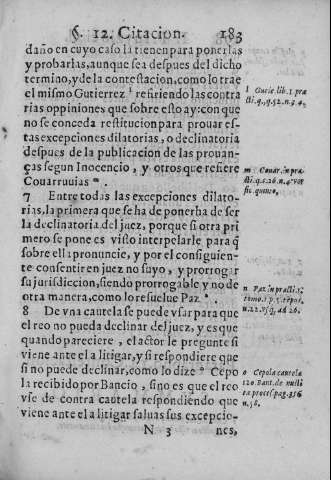 §. 12. Citacion. 183
daño en cuyo caso la tienen para ponerlas
y probarlas, aunque sea despues del dicho
termino, y de la contestacion, como lo trae
el mismo Gutierrez l refiriendo las contra
rias oppiniones que sobre esto ay: con que
no se conceda restitucion para prouar es-
tas excepciones dilatorias, o declinatoria
despues de la publicacion de las prouan-
ças segun Inocencio, y otros que refiere
Couarruuias m.
7 Entre todas las excepciones dilato-
rias, la primera que se ha de poner ha de ser
la declinatoria del juez, porque si otra pri
mero se pone es visto interpelarle para q̃
sobre ella pronuncie, y por el consiguien-
te consentir en juez no suyo, y prorrogar
su jurisdiccion, siendo prorrogable y no de
otra manera, como lo resuelue Paz n.
8 De vna cautela se puede vsar para que
el reo no pueda declinar del juez, y es que
quando pareciere, el actor le pregunte si
viene ante el a litigar, y si respondiere que
si no puede declinar, como lo dize o Cepo
la recibido por Bancio, sino es que el reo
vse de contra cautela respondiendo que
viene ante el a litigar saluas sus excepcio-
N 3 nes,
l Gutie. lib. 1. pra
cti. q., q. 52. n. 3. 4.
m Couar. in pra
cti. q. c. 26. n. 4. ver
sic. queno,
n Paz in practi.
tomo. 1. p. 5. tẽpos,
n. 22. vsq, ad 26.
o Cepola cautela
120. Bant. de nulli
ex proces. pag. 356
n. 58.